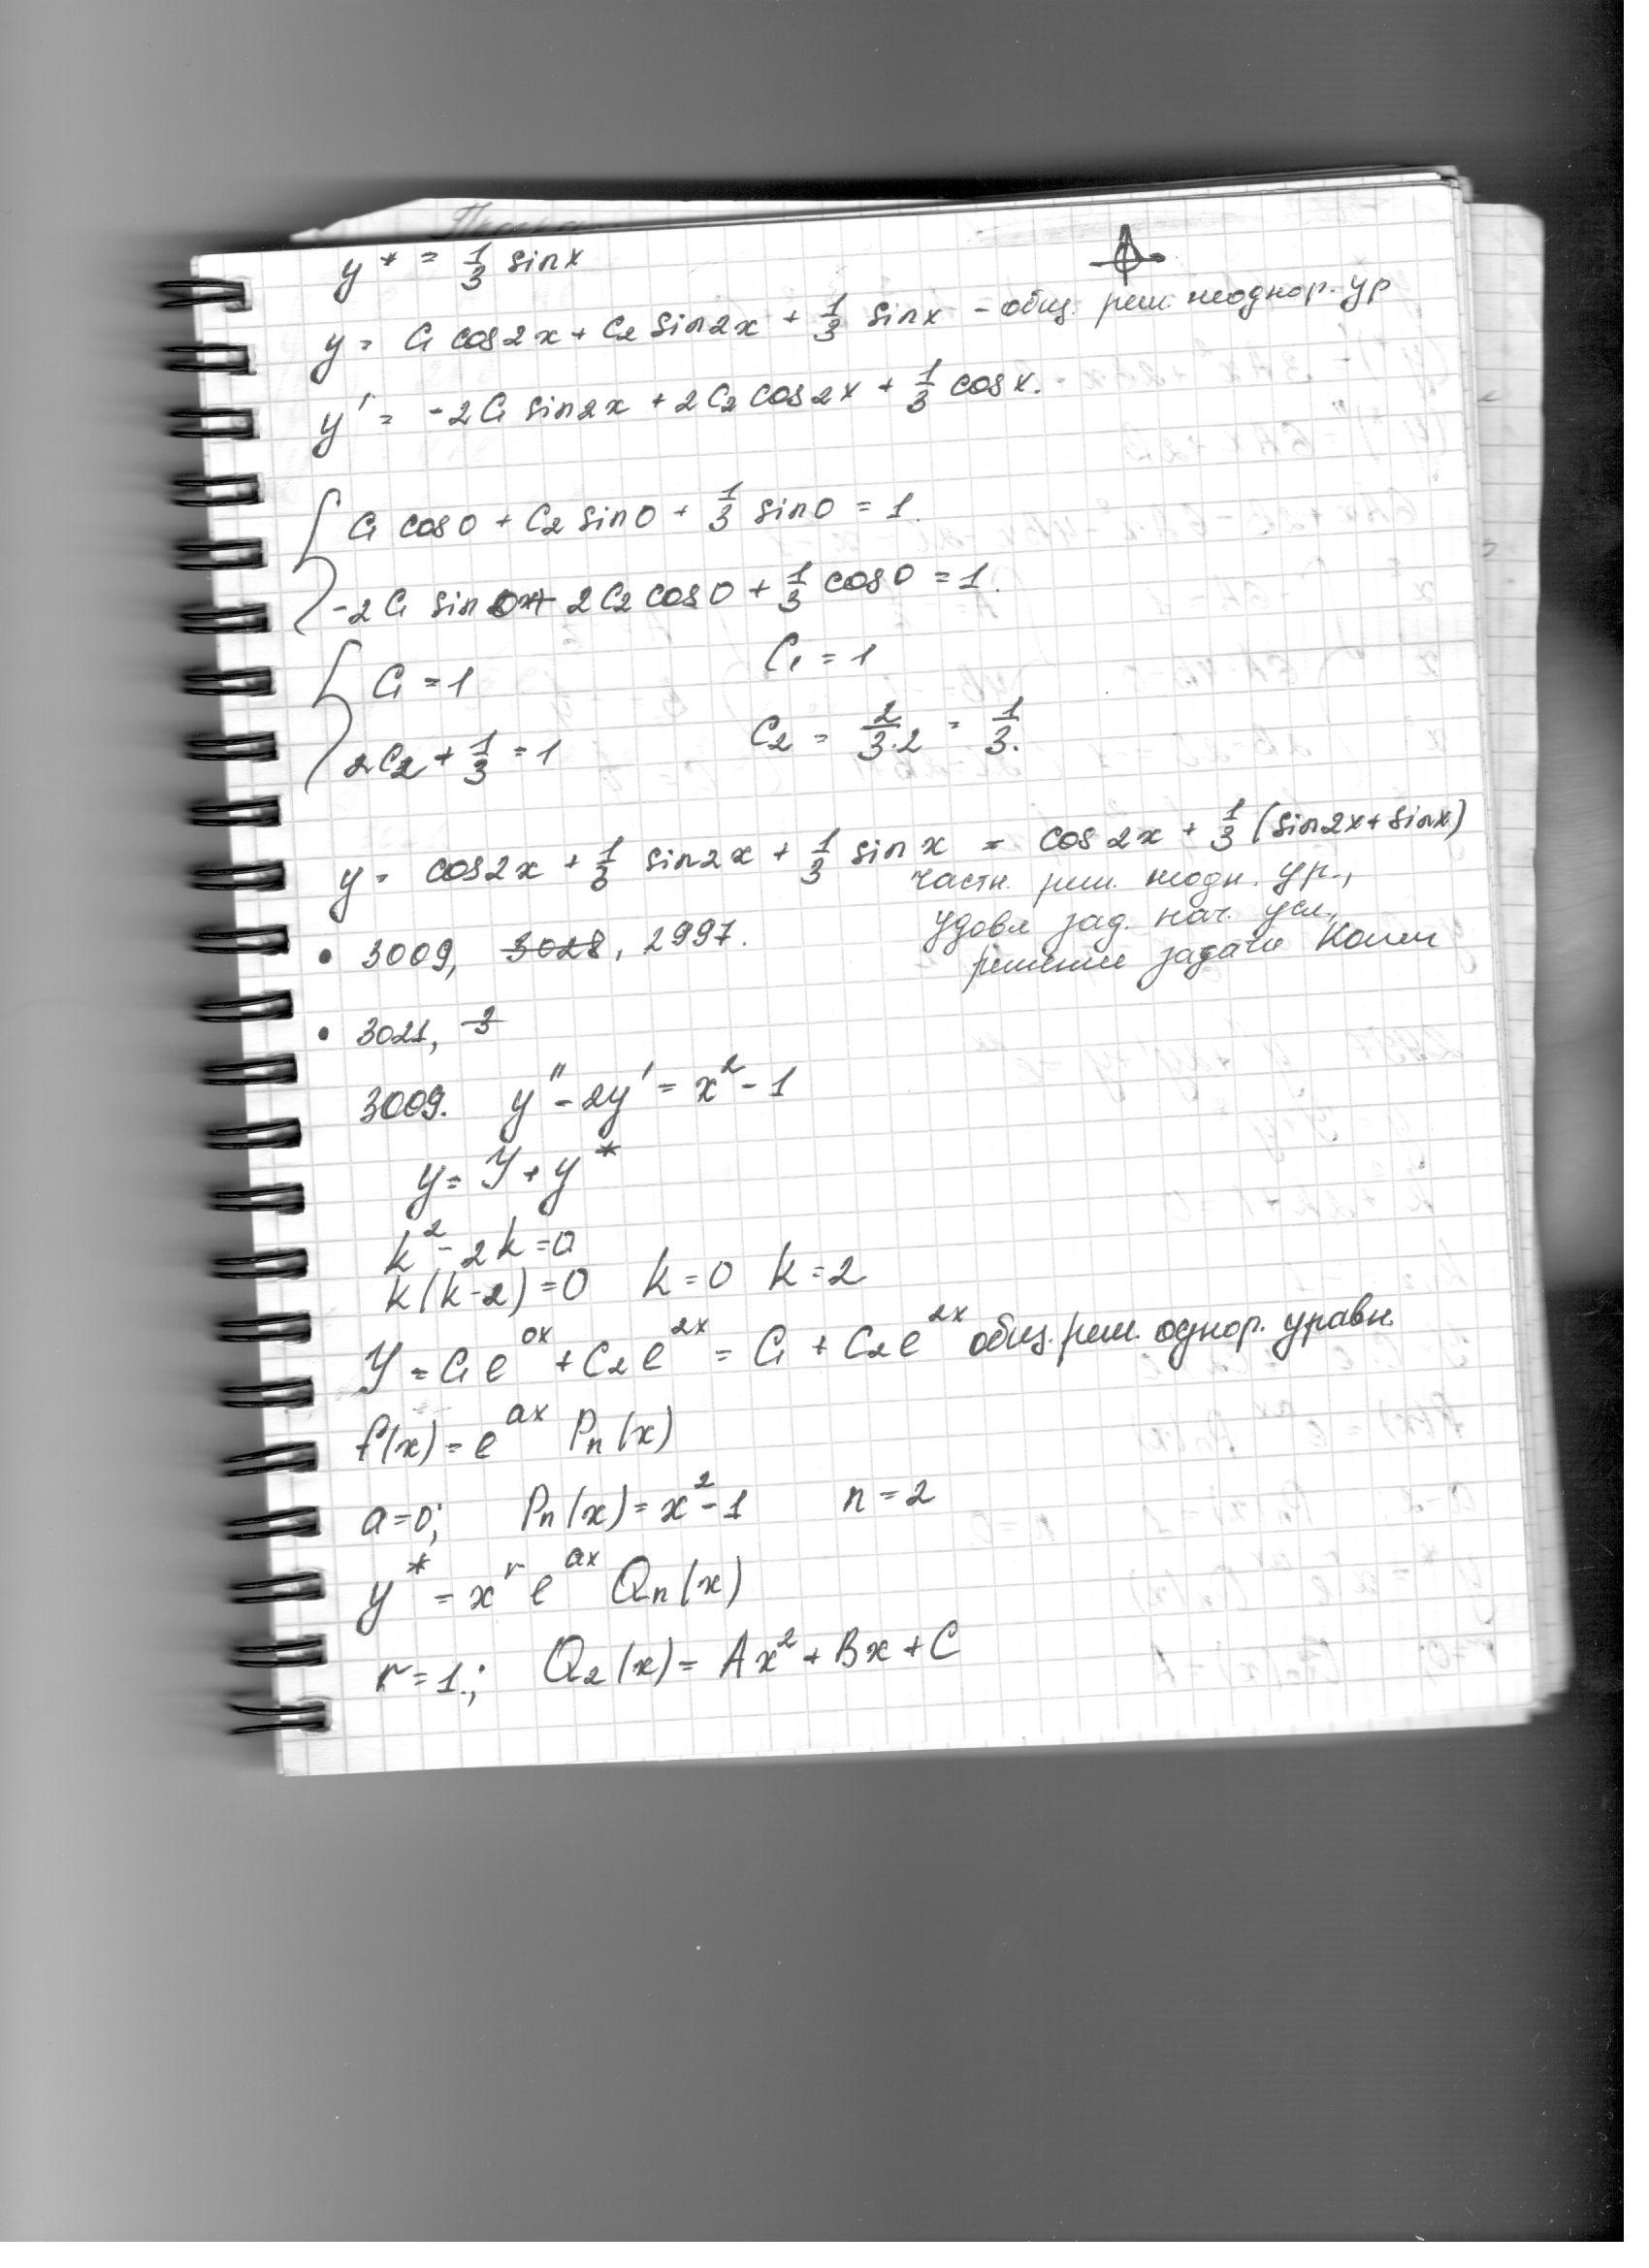 y* = 1/3 sin x
y = C₁ cos2x + C₂ sin2x + 1/3 sin x - общ. реш. неоднор. ур
y' = -2C₁ sin2x + 2C₂ cos2x + 1/3 cos x.
C₁ cos0 + C₂ sin0 + 1/3 sin0 = 1.
-2C₁ sin0 + 2C₂ cos0 + 1/3 cos0 = 1.
C₁ = 1 C₁ = 1
2C₂ + 1/3 = 1 C₂ = 2/3·2 = 1/3.
y = cos2x + 1/3 sin2x + 1/3 sin x = cos2x + 1/3 (sin2x + sin x)
частн. реш. неодн. ур.,
удовл зад. нач. усл.,
решение задачи Коши
• 3009, 3028, 2997.
• 3021, 3
3009. y'' - 2y' = x² - 1
y = Y + y*
k² - 2k = 0
k(k-2) = 0 k = 0 k = 2
Y = C₁e⁰ˣ + C₂e²ˣ = C₁ + C₂e²ˣ общ. реш. однор. уравн.
f(x) = e^ax Pₙ(x)
a = 0; Pₙ(x) = x² - 1 n = 2
y* = x^r e^ax Qₙ(x)
r = 1.; Q₂(x) = Ax² + Bx + C